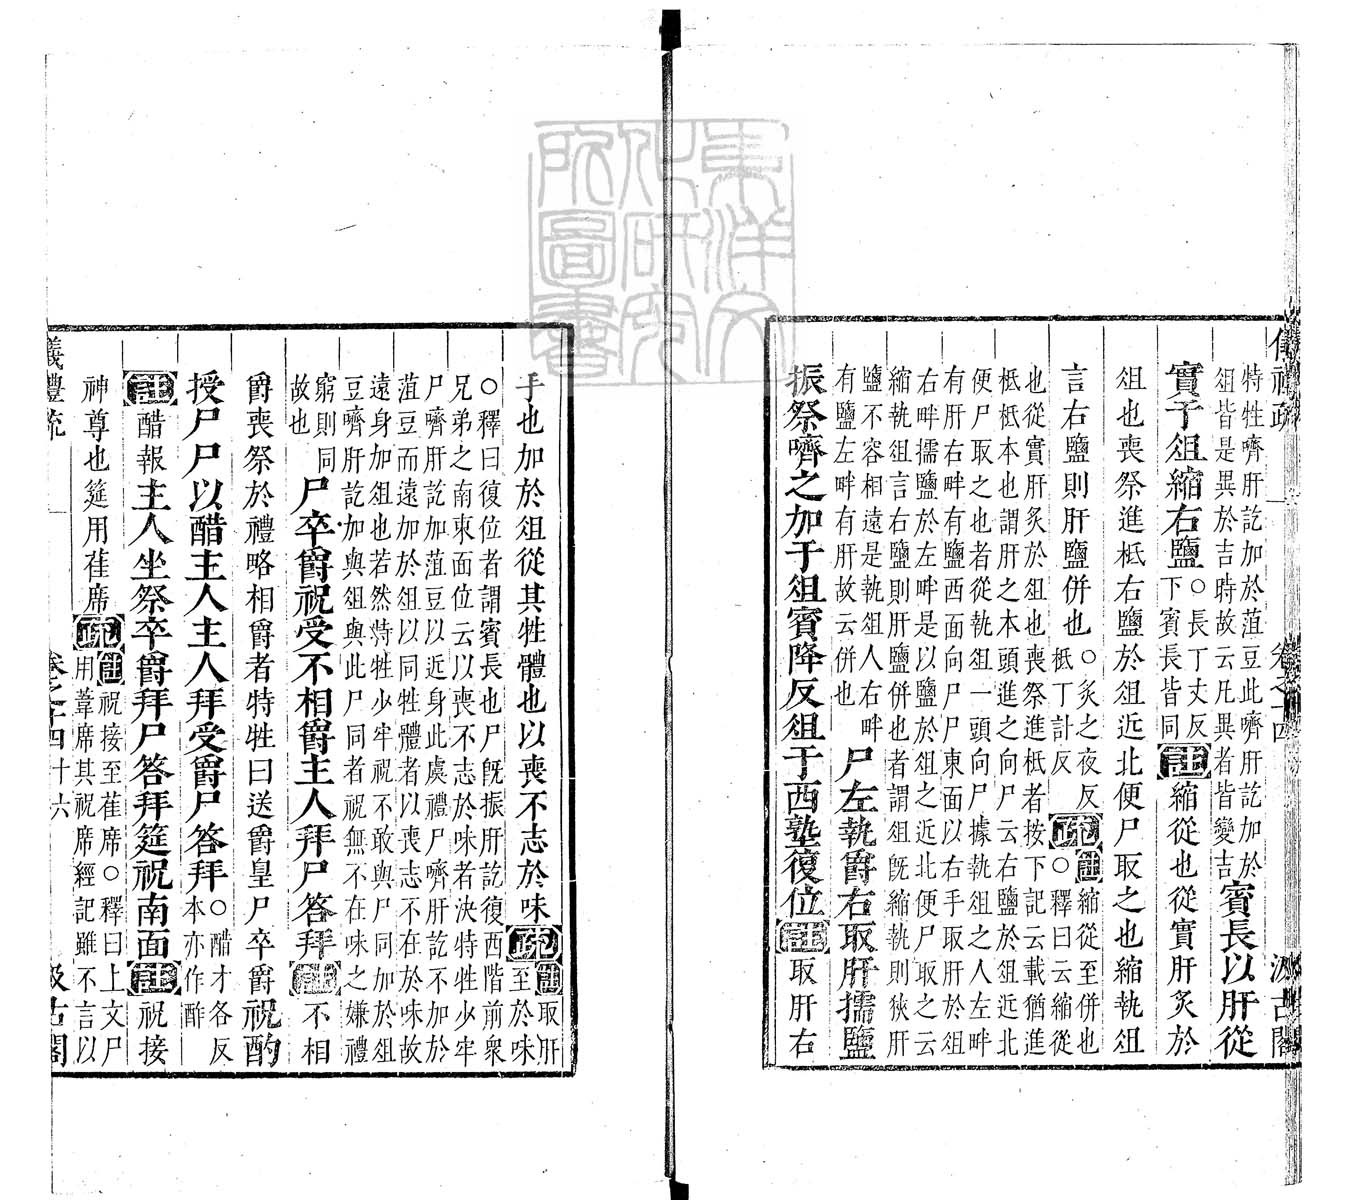 特牲嚌肝訖加於葅豆此嚌肝訖加於
俎皆是異於吉時故云凡異者皆變吉
賓長以肝從
實于俎縮右鹽
○長丁丈反
下賓長皆同
註縮從也從實肝炙於
俎也喪祭進柢右鹽於俎近北便尸取之也縮執俎
言右鹽則肝鹽併也
○炙之夜反
柢丁計反
疏
註縮從至併也
○釋曰云縮從
也從實肝炙於俎也喪祭進柢者按下記云載猶進
柢柢本也謂肝之本頭進之向尸云右鹽於俎近北
便尸取之也者從執俎一頭向尸據執俎之人左畔
有肝右畔有鹽西面向尸尸東面以右手取肝於俎
右畔擩鹽於左畔是以鹽於俎之近北便尸取之云
縮執俎言右鹽則肝鹽併也者謂俎旣縮執則狹肝
鹽不容相遠是執俎人右畔
有鹽左畔有肝故云併也
尸左執爵右取肝擩鹽
振祭嚌之加于俎賓降反俎于西塾復位註取肝右
手也加於俎從其牲體也以喪不志於味疏
註取肝
至於味
○釋曰復位者謂賓長也尸旣振肝訖復西階前衆
兄弟之南東面位云以喪不志於味者決特牲少牢
尸嚌肝訖加葅豆以近身此虞禮尸嚌肝訖不加於
葅豆而遠加於俎以同牲體者以喪志不在於味故
遠身加俎也若然特牲少牢祝不敢與尸同加於俎
豆嚌肝訖加與俎與此尸同者祝無不在味之嫌禮
窮則同
故也
尸卒爵祝受不相爵主人拜尸答拜註不相
爵喪祭於禮略相爵者特牲曰送爵皇尸卒爵祝酌
授尸尸以醋主人主人拜受爵尸答拜
○醋才各反
本亦作酢
註醋報主人坐祭卒爵拜尸答拜筵祝南面註祝接
神尊也筵用萑席疏
註祝接至萑席○釋曰上文尸
用葦席其祝席經記雖不言以
儀禮疏
卷之十四
十六
汲古閣